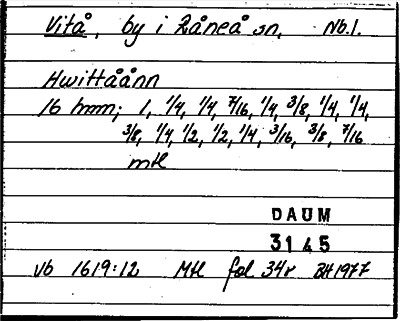 Vitå, by i Råneå sn. Nb.l.
Hwittåånn
16 hmn; 1, 1/4, 1/4, 7/16, 1/4, 3/8, 1/4, 1/4,
3/8, 1/4, 1/2, 1/2, 1/4, 3/16, 3/8, 7/16
mtl
DAUM
3145
vb 1619:12 Mtl fol 34r BH 1977